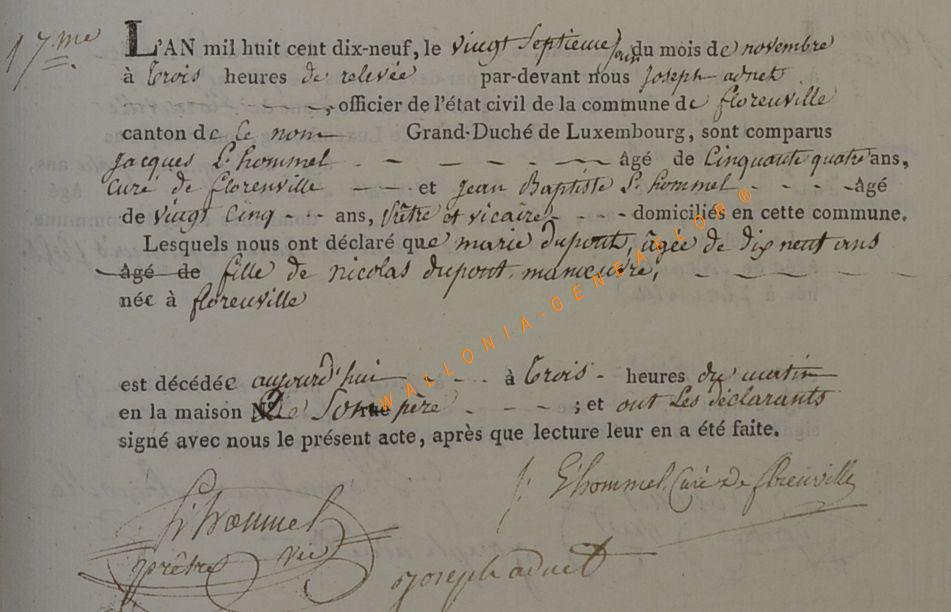 17.me
L'AN mil huit cent dix-neuf, le vingt septieme jour du mois de novembre
à trois heures de relevée par-devant nous joseph adnet
- - - -, officier de l'état civil de la commune de florenville
canton de ce nom Grand-Duché de Luxembourg, sont comparus
jacques L'hommel - - - - âgé de Cinquante quatre ans,
Curé de florenville - - - et jean Baptiste L'hommel - - - - âgé
de vingt cinq - - - ans, Prêtre et vicaire - - - - domiciliés en cette commune.
Lesquels nous ont déclaré que marie dupont, agée de dix neuf ans
âgé de fille de nicolas dupont, manœuvre,
née à florenville
est décédée aujourd'hui - - - à trois - heures du matin
en la maison de Son père - - - - ; et ont Les déclarants
signé avec nous le présent acte, après que lecture leur en a été faite.
j. L'hommel Curé de florenville
L'hommel
prêtre vic
joseph adnet
WALLONIA-GENEALOR®